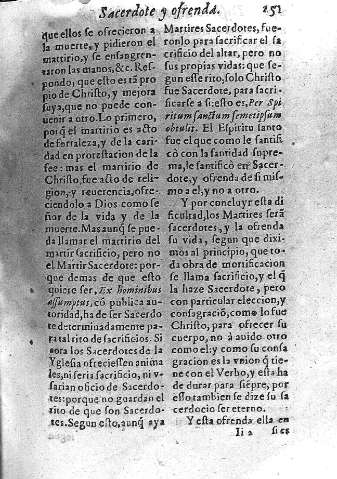 Sacerdote y ofrenda. 251
que ellos se ofrecieron a
la muerte, y pidieron el
martirio, y se ensangren-
taron las manos, &c. Res-
pondo, que esto es tã pro
pio de Christo, y mejora
suya, que no puede con-
uenir a otro. Lo primero,
porq̃ el martirio es acto
de fortaleza, y de la cari-
dad en protestacion de la
fee: mas el martirio de
Christo, fue acto de reli-
gion, y reuerencia, ofre-
ciendolo a Dios como se
ñor de la vida y de la
muerte. Mas aunq̃ se pue-
da llamar el martirio del
martir sacrificio, pero no
el Martir Sacerdote: por-
que demas de que esto
quiere ser, Ex hominibus
assumptus, cõ publica au-
toridad, ha de ser Sacerdo
te determinadamente pa-
ra tal rito de sacrificios. Si
aora los Sacerdotes de la
Yglesia ofreciessen anima
les, ni seria sacrificio, ni v-
sarian oficio de Sacerdo-
tes: porque no guardan el
rito de que son Sacerdo-
tes. Segun esto, aunq̃ aya
Martires Sacerdotes, fue-
ronlo para sacrificar el sa
crificio del altar, pero no
sus propias vidas: que se-
gun este rito, solo Christo
fue Sacerdote, para sacri-
ficarse a si: esto es, Per Spi
ritum sanctum semetipsum
obtulit. El Espiritu santo
fue el que como le santifi
cò con la santidad supre-
ma, le santificò en Sacer-
dote, y ofrenda de si mis-
mo a el, y no a otro.
Y por concluyr esta di
ficultad, los Martires serã
sacerdotes, y la ofrenda
su vida, segun que dixi-
mos al principio, que to-
da obra de mortificacion
se llama sacrificio, y el q̃
la haze Sacerdote, pero
con particular eleccion, y
consagraciõ, como lo fue
Christo, para ofrecer su
cuerpo, no à auido otro
como el: y como su consa
gracion es la vnion q̃ tie-
ne con el Verbo, y esta ha
de durar para siẽpre, por
esso tambien se dize su sa
cerdocio ser eterno.
Y esta ofrenda ella en
Ii 2 si es